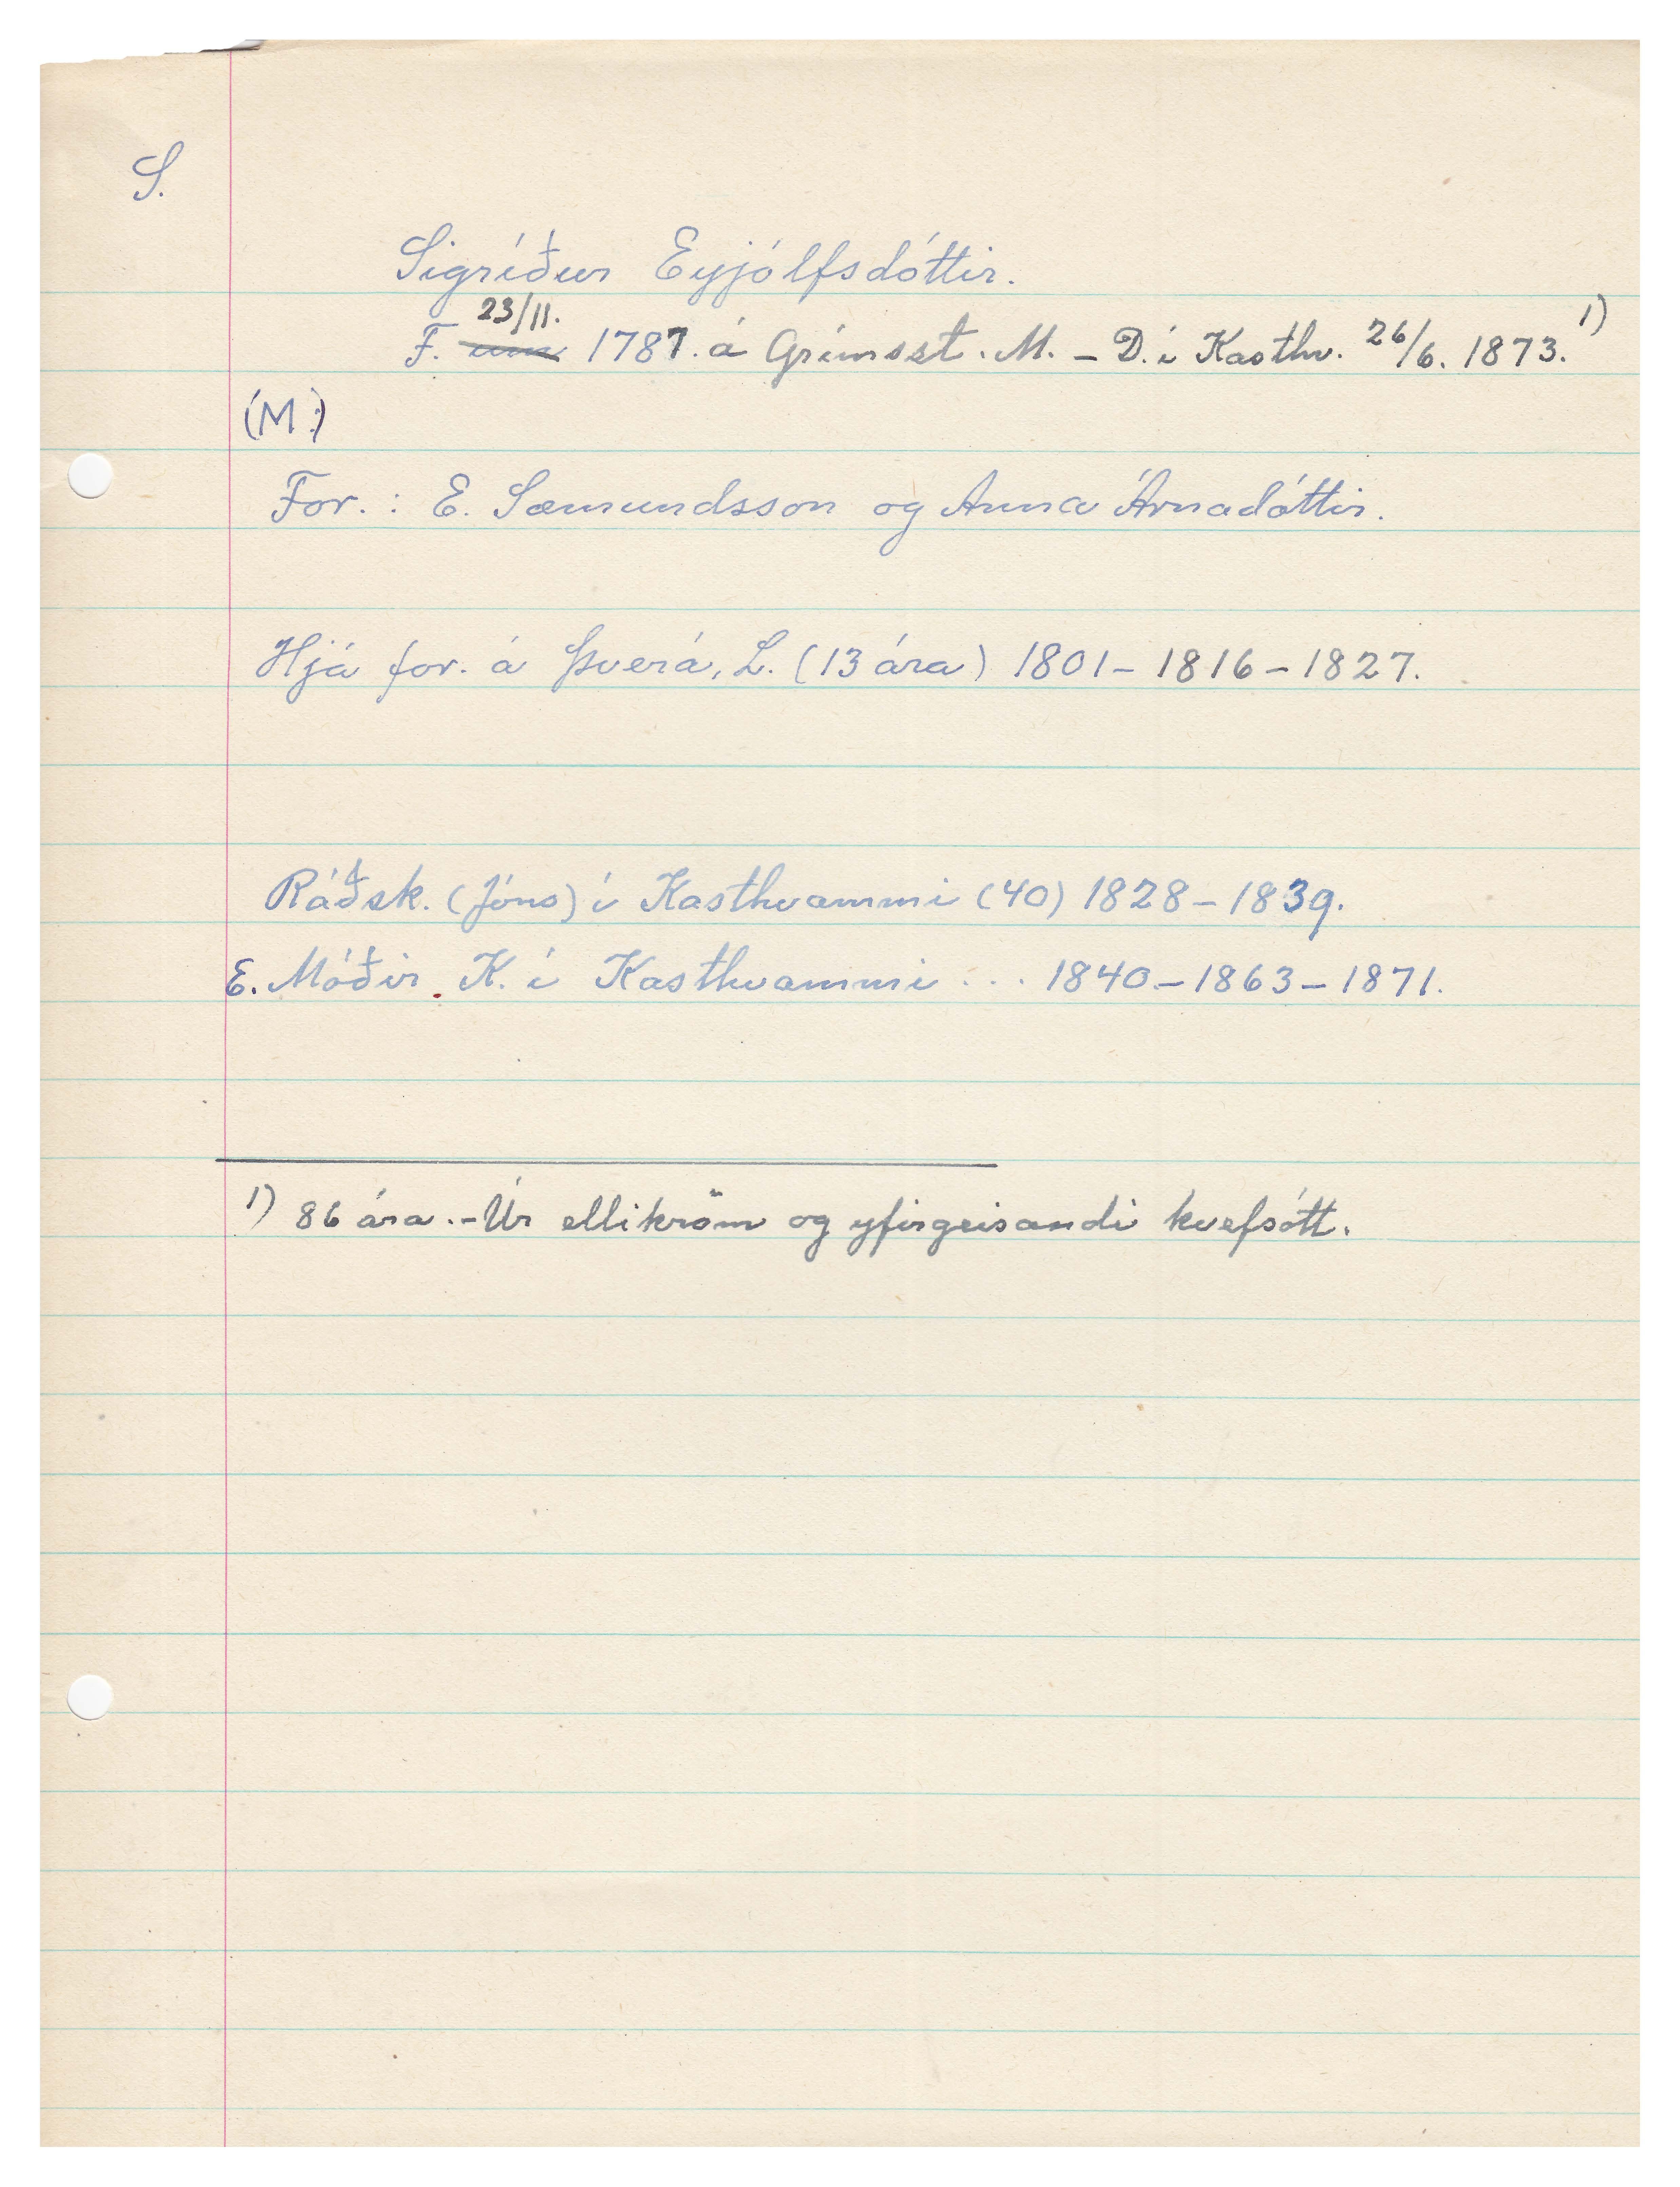 S.
Sigríður Eyjólfsdóttir.
23/11.
F. um 1787. á Grímsst. M. - D. í Kasthv. 26/6. 1873. 1)
(M:)
For. : E. Sæmundsson og Anna Árnadóttir.
Hjá for. á Þverá, L. (13 ára) 1801 - 1816 - 1827.
Ráðsk. (Jóns) í Kasthvammi (40) 1828 - 1839.
E. Móðir K. í Kasthvammi ... 1840 - 1863 - 1871.
1) 86 ára. - Úr ellikröm og yfirgeisandi kvefsótt.